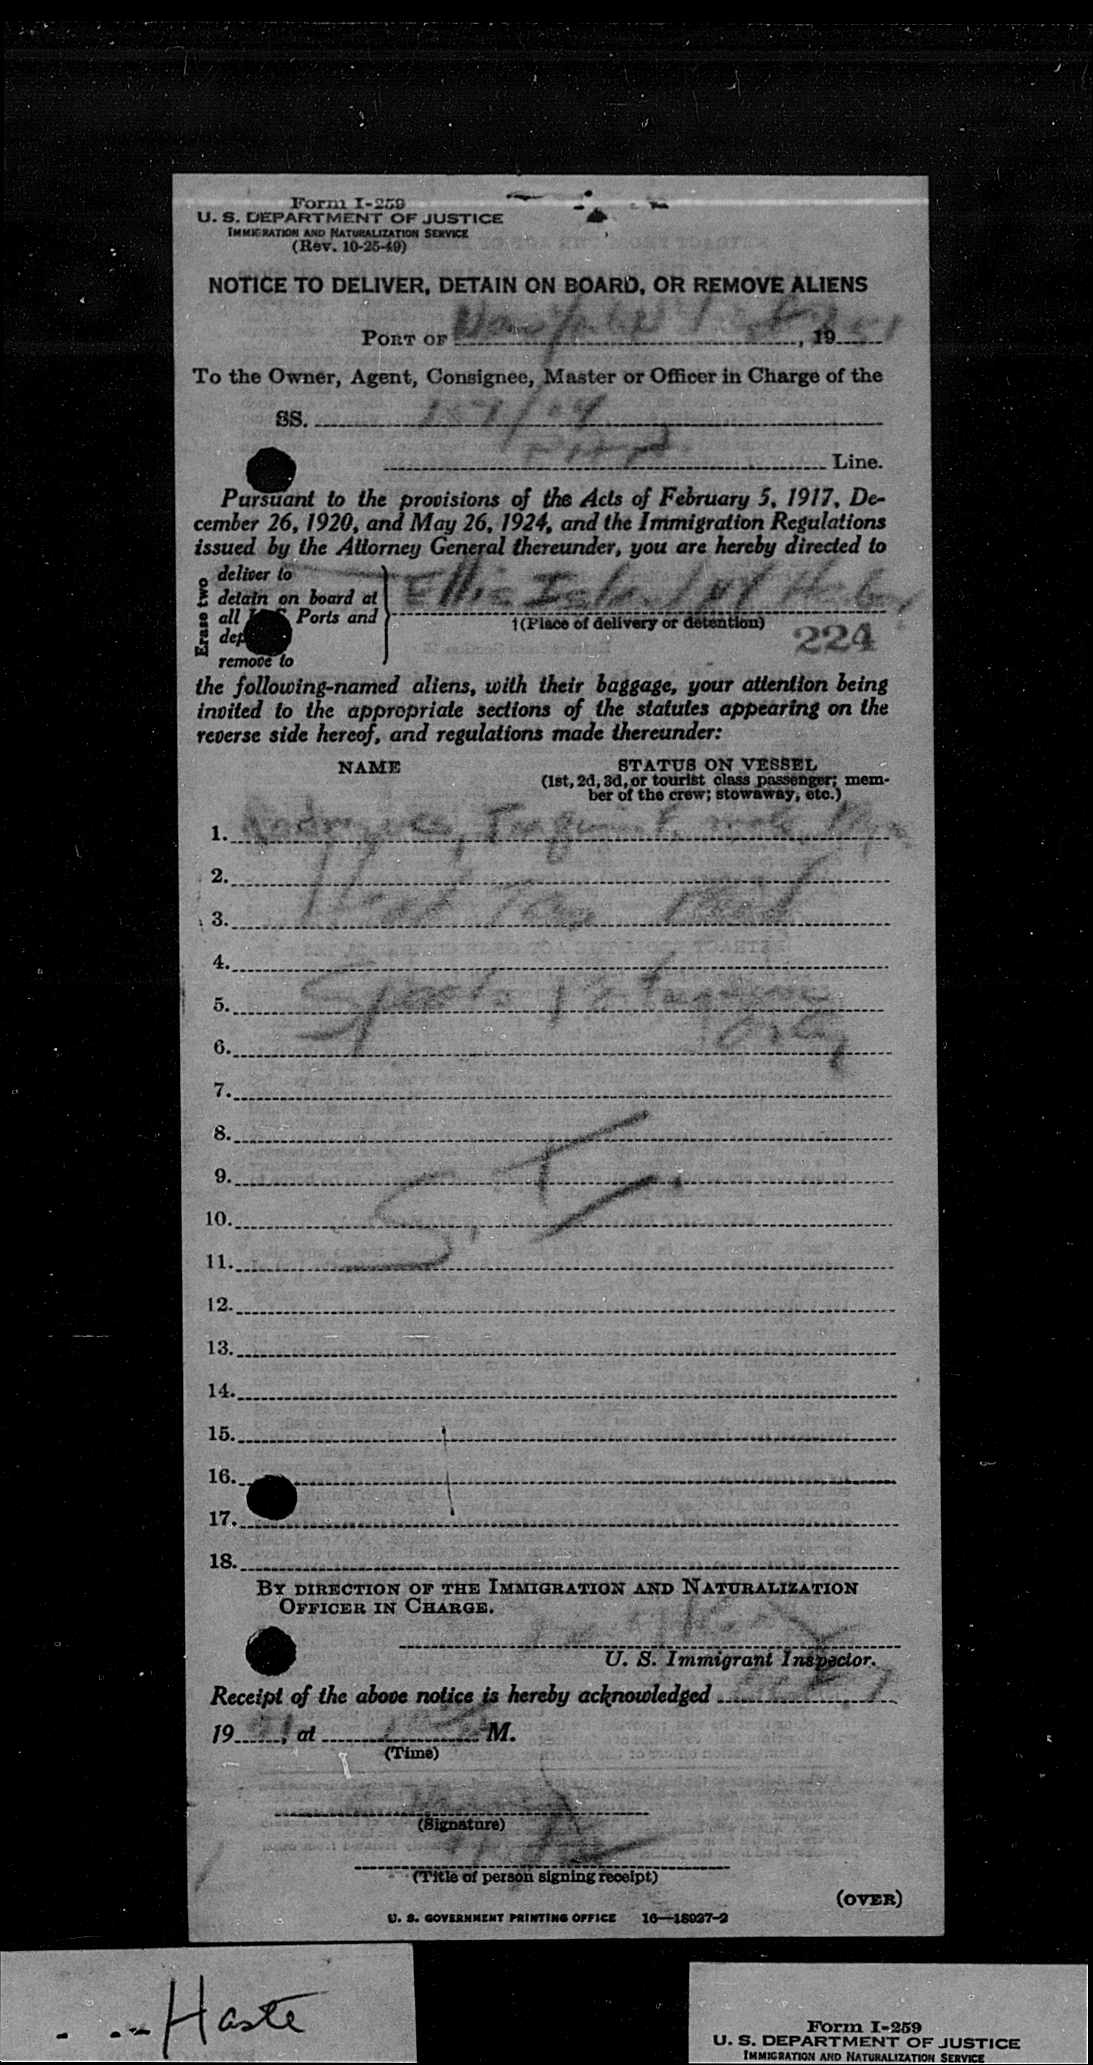 Form I-259
U. S. DEPARTMENT OF JUSTICE
IMMIGRATION AND NATURALIZATION SERVICE
(Rev. 10-25-49)
NOTICE TO DELIVER, DETAIN ON BOARD, OR REMOVE ALIENS
PORT OF New York , 19 51
To the Owner, Agent, Consignee, Master or Officer in Charge of the
SS. 157/04
Line.
Pursuant to the provisions of the Acts of February 5, 1917, De-
cember 26, 1920, and May 26, 1924, and the Immigration Regulations
issued by the Attorney General thereunder, you are hereby directed to
Erase two
deliver to
detain on board at
all Ports and
remove to
Ellis Island NY Harbor
†(Place of delivery or detention)
224
the following-named aliens, with their baggage, your attention being
invited to the appropriate sections of the statutes appearing on the
reverse side hereof, and regulations made thereunder:
NAME
STATUS ON VESSEL
(1st, 2d, 3d, or tourist class passenger; mem-
ber of the crew; stowaway, etc.)
1. Rodrigues, male,
2.
3. Head Tax Paid
4.
5. Speaks Portuguese
6. only
7.
8.
9.
10. S. I.
11.
12.
13.
14.
15.
16.
17.
18.
BY DIRECTION OF THE IMMIGRATION AND NATURALIZATION
OFFICER IN CHARGE.
U. S. Immigrant Inspector.
Receipt of the above notice is hereby acknowledged
19 51, at M.
(Time)
(Signature)
(Title of person signing receipt)
(OVER)
U. S. GOVERNMENT PRINTING OFFICE 16—18927-2
Haste
Form I-259
U. S. DEPARTMENT OF JUSTICE
IMMIGRATION AND NATURALIZATION SERVICE